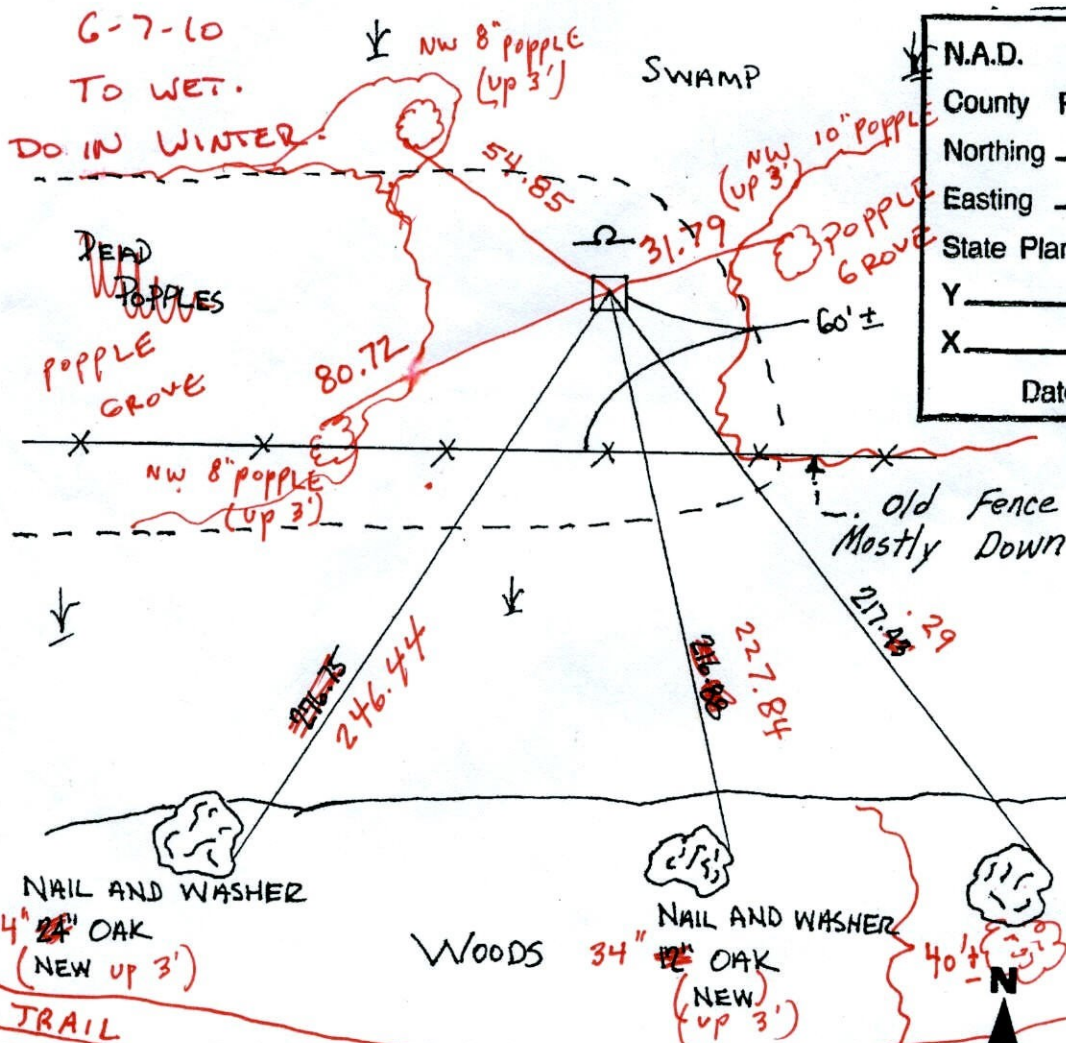 6-7-10
TO WET.
DO IN WINTER.
NW 8" popple
(up 3')
SWAMP
N.A.D.
County
Northing
Easting
State Plan
Y
X
Date
54.85
NW 10" popple
(up 3')
31.79
POPPLE
GROVE
DEAD
POPPLES
POPPLE
GROVE
80.72
60'±
NW 8" popple
(up 3')
Old Fence
Mostly Down
246.44
227.84
217.43 .29
NAIL AND WASHER
4" 24" OAK
(NEW up 3')
WOODS
NAIL AND WASHER
34" 12" OAK
(NEW)
(up 3')
40'±
N
TRAIL